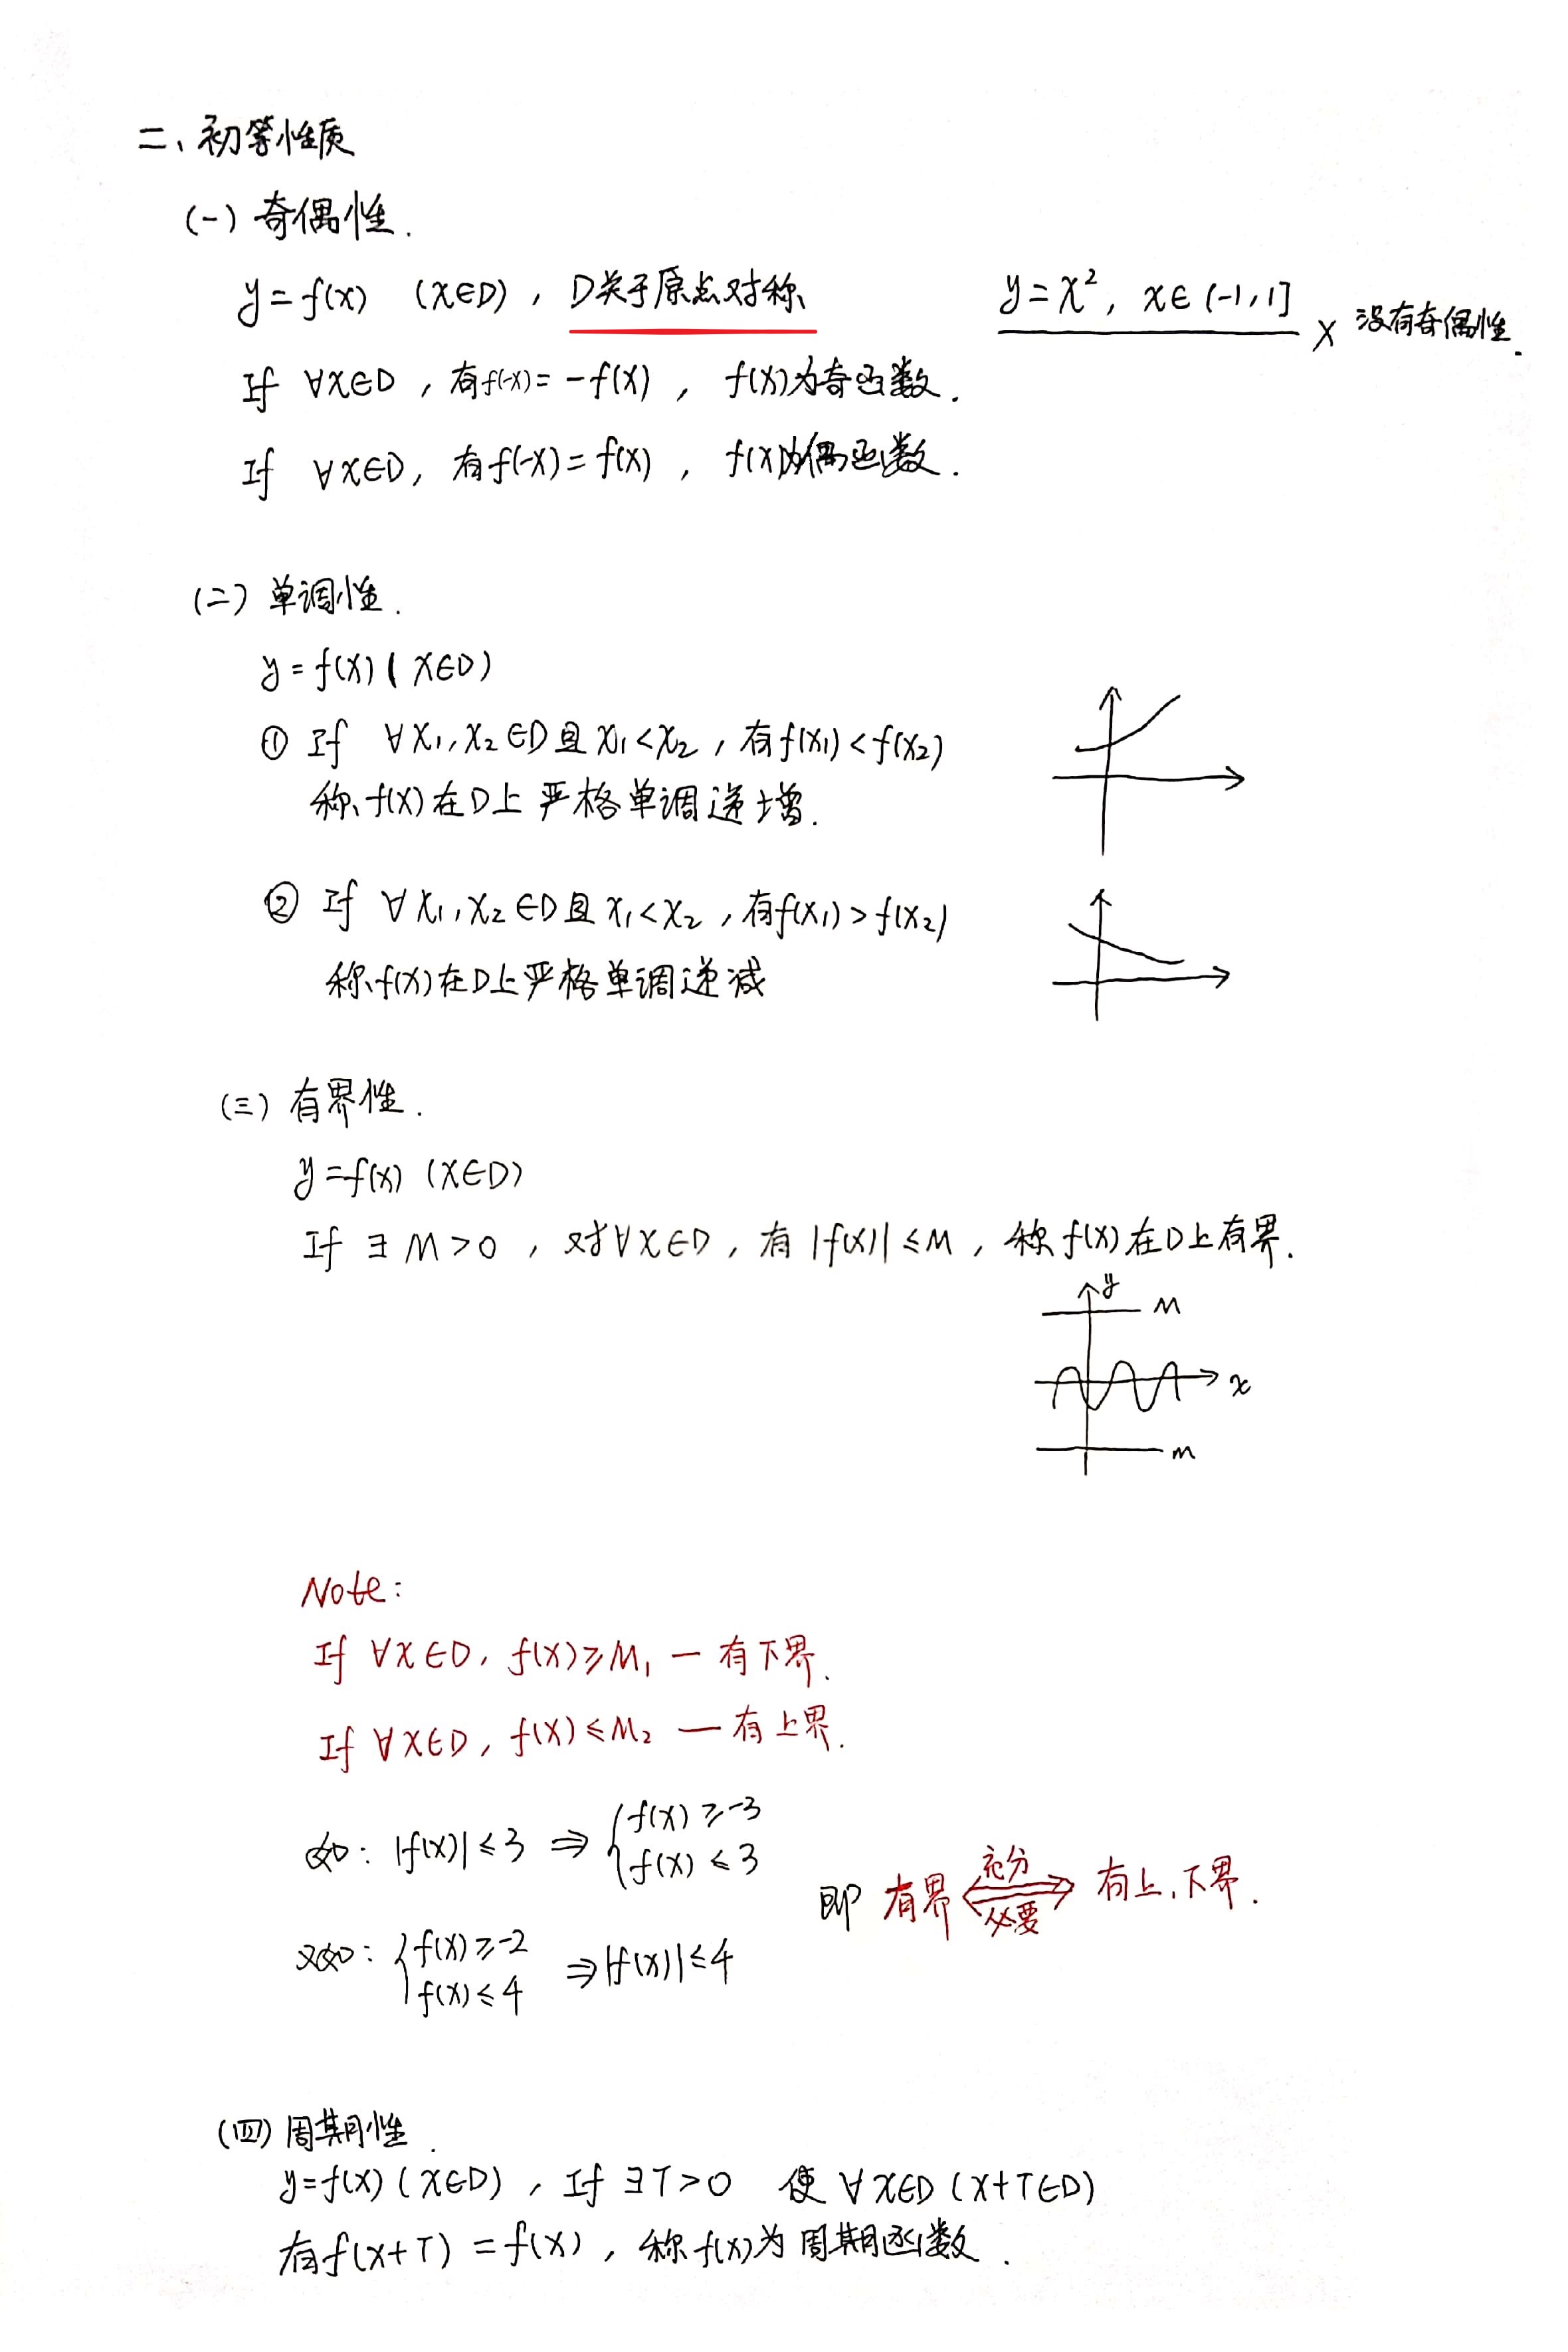 二、初等性质
(一) 奇偶性.
y=f(x) (x∈D), D关于原点对称 y=x², x∈(-1,1] × 没有奇偶性.
If ∀x∈D, 有f(-x)=-f(x), f(x)为奇函数.
If ∀x∈D, 有f(-x)=f(x), f(x)为偶函数.
(二) 单调性.
y=f(x) (x∈D)
① If ∀x₁,x₂∈D且x₁<x₂, 有f(x₁)<f(x₂)
称f(x)在D上严格单调递增.
② If ∀x₁,x₂∈D且x₁<x₂, 有f(x₁)>f(x₂)
称f(x)在D上严格单调递减
(三) 有界性.
y=f(x) (x∈D)
If ∃M>0, 对∀x∈D, 有|f(x)|≤M, 称f(x)在D上有界.
y
M
x
m
Note:
If ∀x∈D, f(x)≥M₁ — 有下界.
If ∀x∈D, f(x)≤M₂ — 有上界.
如: |f(x)|≤3 ⇒ { f(x)≥-3
f(x)≤3
即 有界 充分 必要 ⇔ 有上、下界.
又如: { f(x)≥-2
f(x)≤4 ⇒|f(x)|≤4
(四) 周期性.
y=f(x) (x∈D), If ∃T>0 使 ∀x∈D (x+T∈D)
有f(x+T)=f(x), 称f(x)为周期函数.